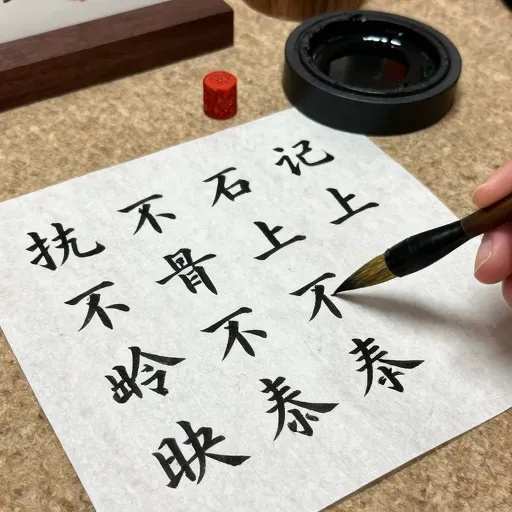 抗不石记
不骨上上
岭不不
映泰泰